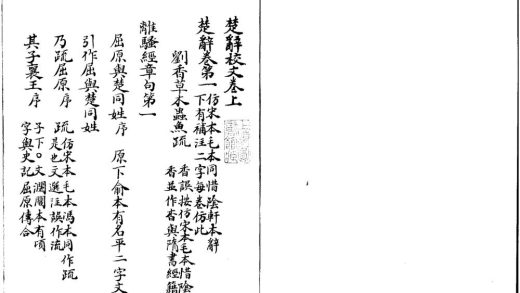 楚辭校文卷上
楚辭卷第一仿宋本毛本同惜陰軒本辭
下有補注二字每卷仿此
劉杳草木蟲魚疏
杳誤按仿宋本毛本惜陰
杳並作杳與隋書經籍
離騷經章句第一
屈原與楚同姓序 原下俞本有名平二字文
引作屈與楚同姓
乃疏屈原序 疏仿宋本毛本馮本同作疏
是也文選注誤作流
其子襄王序 子下。文瀾閣本有頃
字與史記屈原傳合